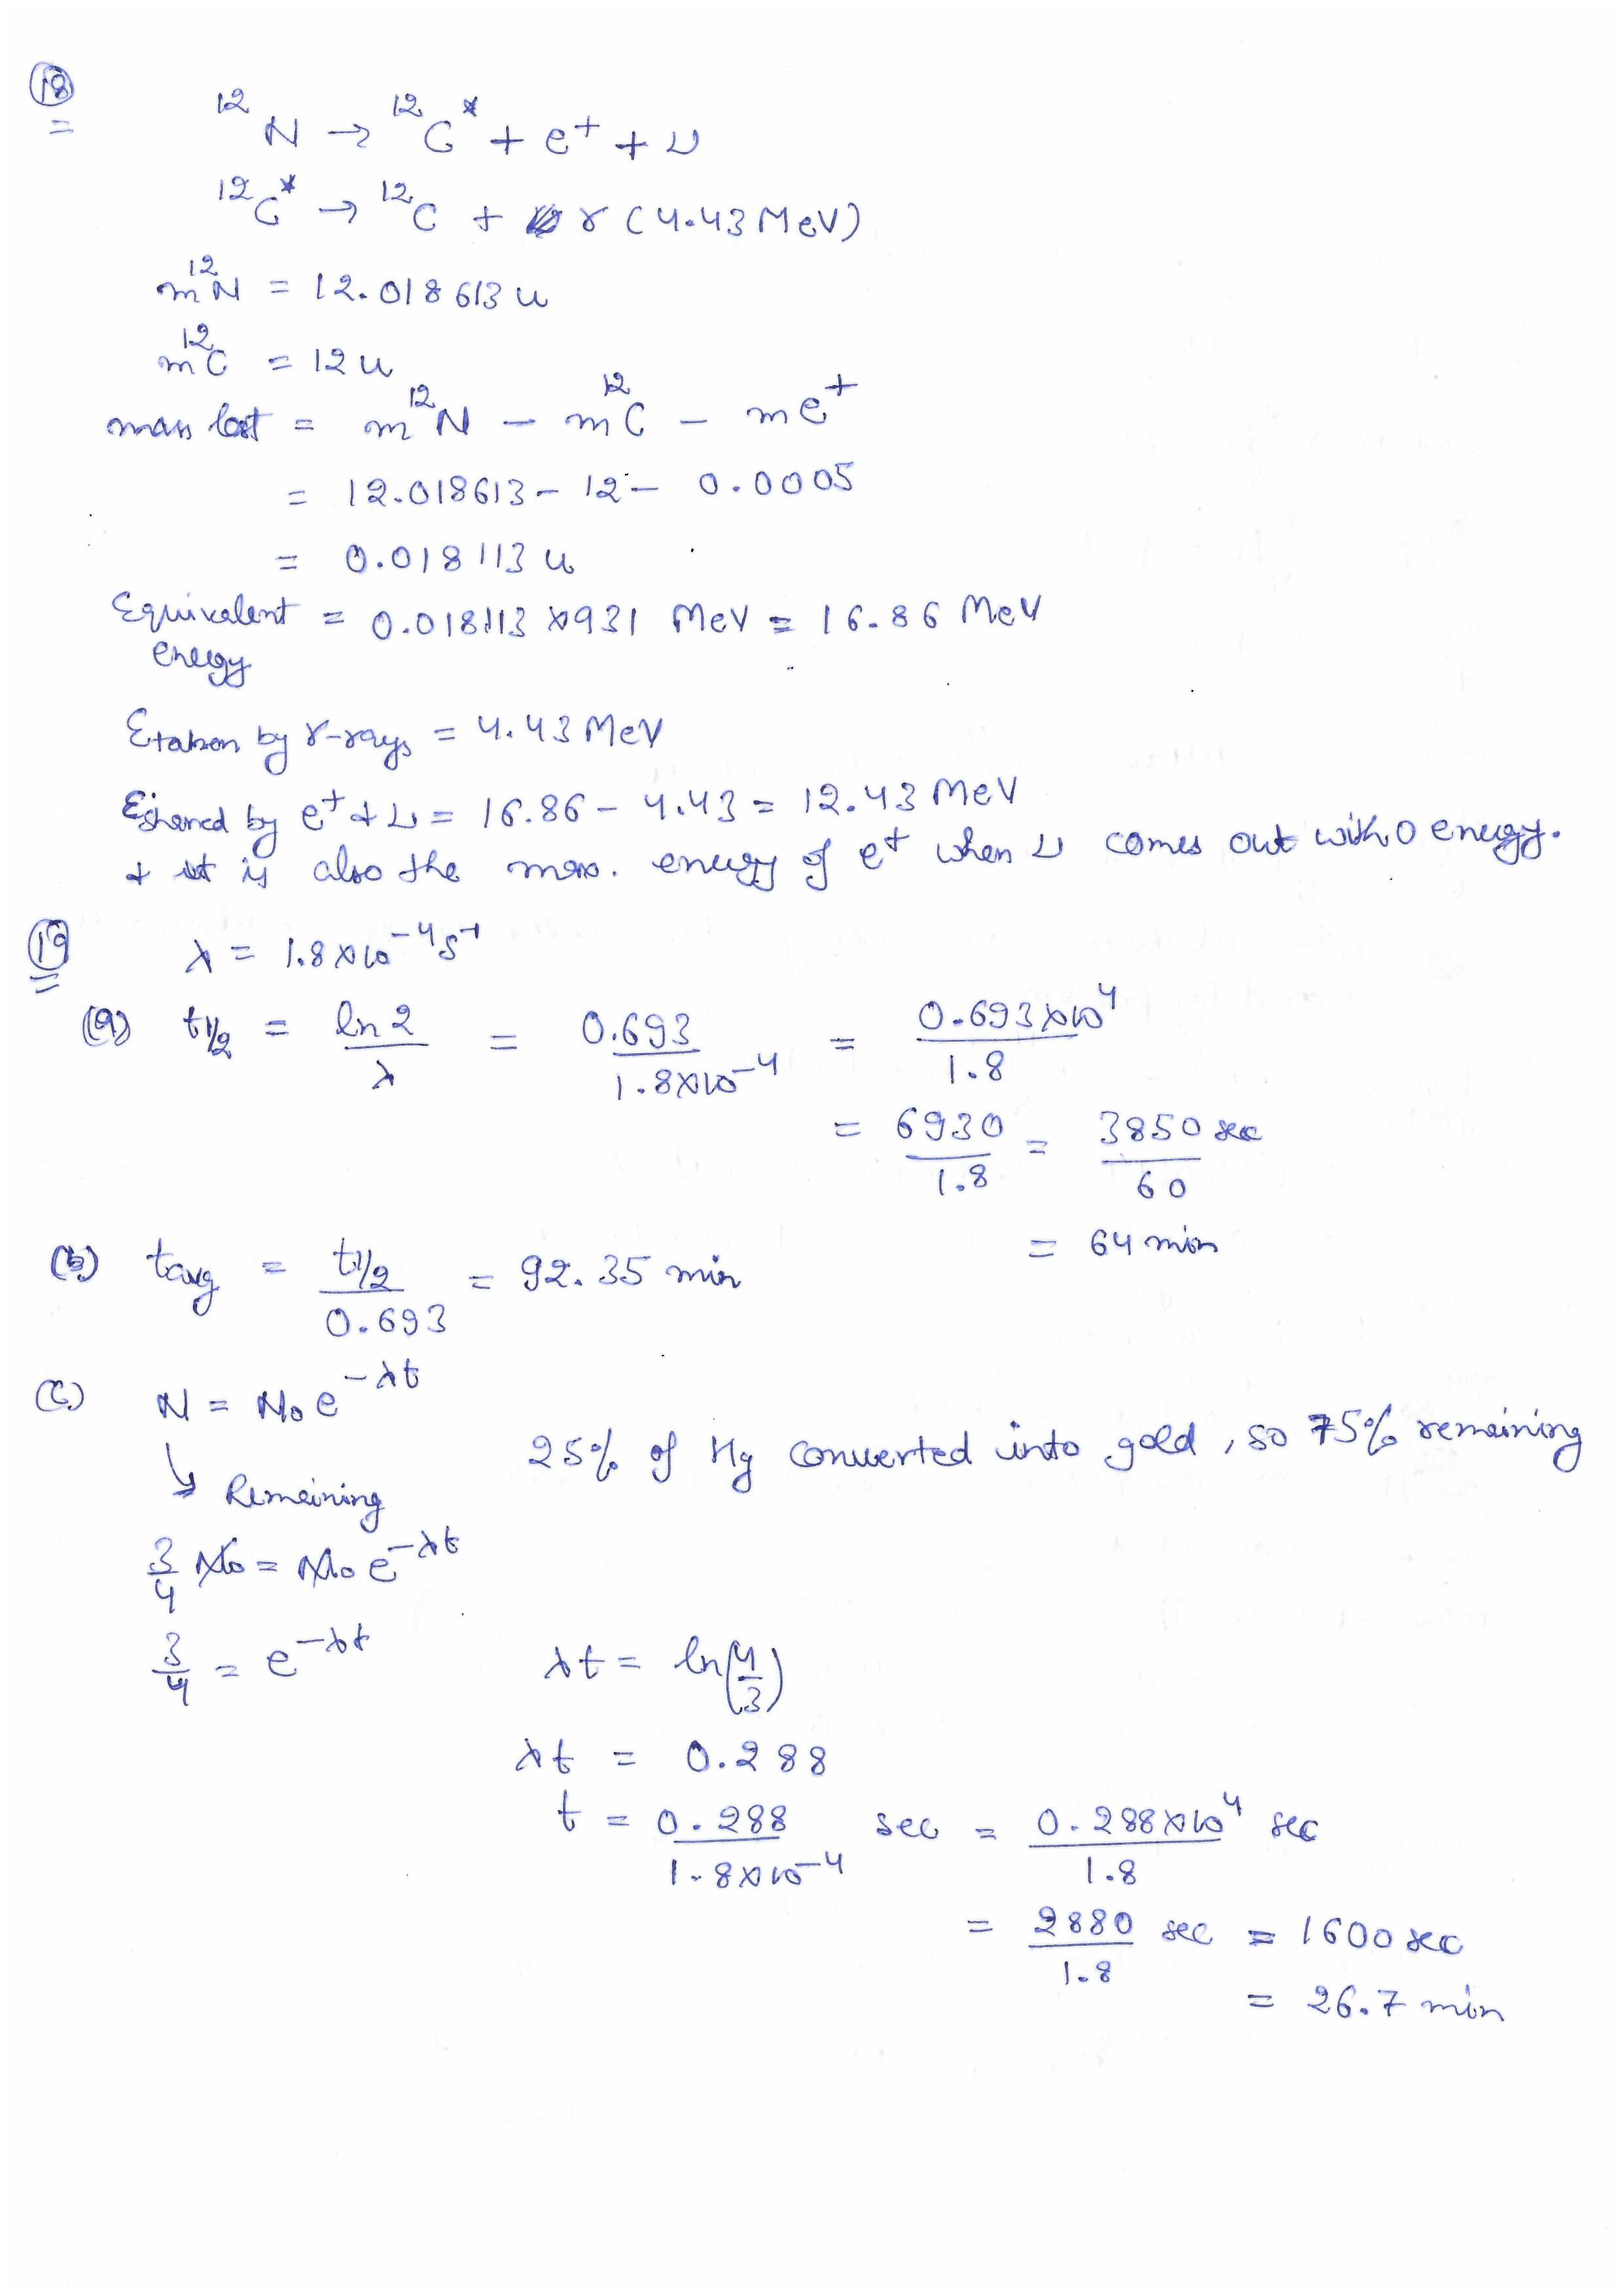 18
¹²N → ¹²C* + e⁺ + ν
¹²C* → ¹²C + γ (4.43 MeV)
m ¹²N = 12.018613 u
m ¹²C = 12 u
mass lost = m ¹²N - m ¹²C - m e⁺
= 12.018613 - 12 - 0.0005
= 0.018113 u
Equivalent energy = 0.018113 × 931 MeV = 16.86 MeV
E taken by γ-rays = 4.43 MeV
E shared by e⁺ & ν = 16.86 - 4.43 = 12.43 MeV
& it is also the max. energy of e⁺ when ν comes out with 0 energy.
19 λ = 1.8×10⁻⁴ s⁻¹
(a) t1/2 = ln 2 / λ = 0.693 / 1.8×10⁻⁴ = 0.693×10⁴ / 1.8
= 6930 / 1.8 = 3850 sec / 60
= 64 min
(b) tavg = t1/2 / 0.693 = 92.35 min
(c) N = N₀ e^-λt
↳ Remaining
25% of Hg converted into gold, so 75% remaining
3/4 N₀ = N₀ e^-λt
3/4 = e^-λt λt = ln(4/3)
λt = 0.288
t = 0.288 / 1.8×10⁻⁴ sec = 0.288×10⁴ / 1.8 sec
= 2880 / 1.8 sec = 1600 sec
= 26.7 min